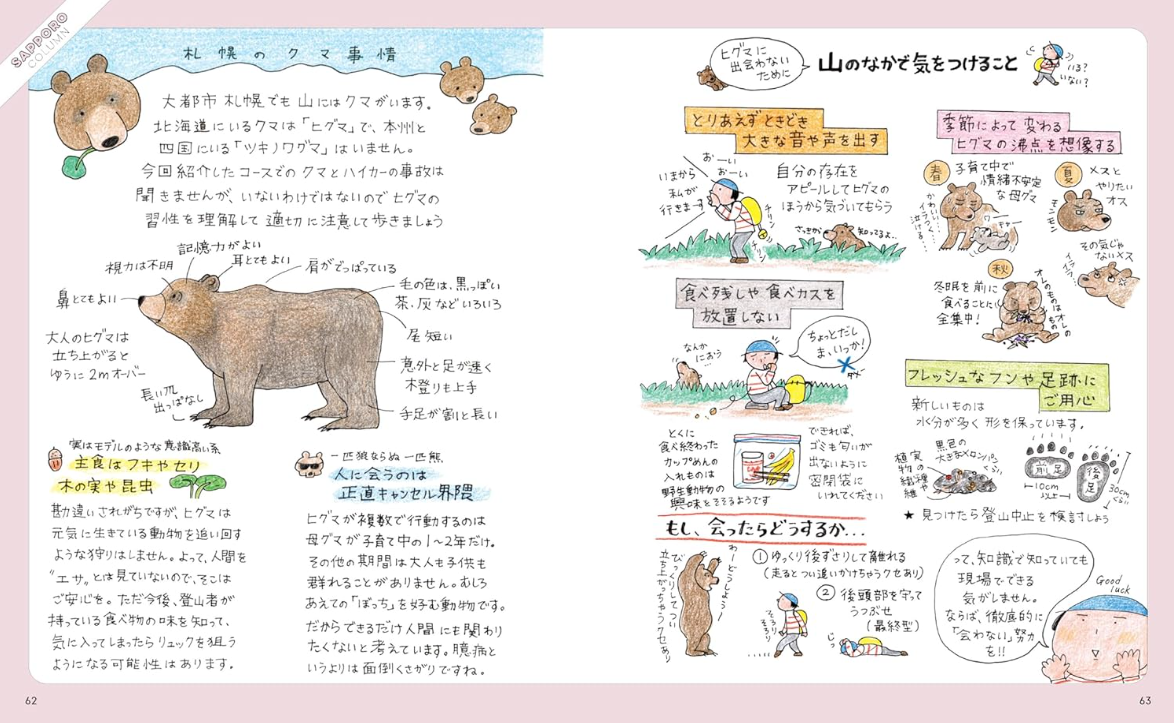 SAPPORO
COLUMN
札幌のクマ事情
大都市札幌でも山にはクマがいます。
北海道にいるクマは「ヒグマ」で、本州と
四国にいる「ツキノワグマ」はいません。
今回紹介したコースでのクマとハイカーの事故は
聞きませんが、いないわけではないのでヒグマの
習性を理解して適切に注意して歩きましょう
記憶力がよい
視力は不明
耳とてもよい
肩がでっぱっている
鼻とてもよい
毛の色は、黒っぽい
茶、灰などいろいろ
尾短い
大人のヒグマは
立ち上がると
ゆうに2mオーバー
意外と足が速く
木登りも上手
長い爪
出っぱなし
手足が割と長い
実はモデルのような意識高い系
主食はフキやセリ
木の実や昆虫
勘違いされがちですが、ヒグマは
元気に生きている動物を追い回す
ような狩りはしません。よって、人間を
“エサ”とは見ていないので、そこは
ご安心を。ただ今後、登山者が
持っている食べ物の味を知って、
気に入ってしまったらリュックを狙う
ようになる可能性はあります。
一匹狼ならぬ一匹熊
人に会うのは
正直キャンセル界隈
ヒグマが複数で行動するのは
母グマが子育て中の1〜2年だけ。
その他の期間は大人も子供も
群れることがありません。むしろ
あえての「ぼっち」を好む動物です。
だからできるだけ人間にも関わり
たくないと考えています。臆病と
いうよりは面倒くさがりですね。
62
ヒグマに
出会わない
ために
山のなかで気をつけること
いる?
いない?
とりあえずときどき
大きな音や声を出す
おーい
おーい
いまから
私が
行きます
チリン
チリン
自分の存在を
アピールしてヒグマの
ほうから気づいてもらう
さっきから
知ってるよ…
食べ残しや食べカスを
放置しない
なんか
におう
ちょっとだし
ま、いっか!
ダメ
とくに
食べ終わった
カップめんの
入れものは
野生動物の
興味をそそるようです
できれば、
ゴミも匂いが
出ないように
密閉袋に
いれてください
季節によって変わる
ヒグマの沸点を想像する
春
子育て中で
情緒不安定
な母グマ
かわいい、
イライラ、
泣ける…
夏
メスと
やりたい
オス
モンモン
その気じゃ
ないメス
イライラ
秋
冬眠を前に
食べることに
全集中!
オレのものは
オレのもの
フレッシュなフンや足跡に
ご用心
新しいものは
水分が多く形を保っています。
黒色の
大きなメロンパンくらい
植物の繊維や
実の種
前足
10cm
以上
後足
30cm
くらい
★見つけたら登山中止を検討しよう
もし、会ったらどうするか…
わーどうしよう…
びっくりしてつい
立ち上がっちゃうクセあり
①ゆっくり後ずさりして離れる
(走るとつい追いかけちゃうクセあり)
そろり
そろり
②後頭部を守って
うつぶせ
(最終型)
じっ
って、知識で知っていても
現場でできる
気がしません。
ならば、徹底的に
「会わない」努力
を!!
Good
luck
63